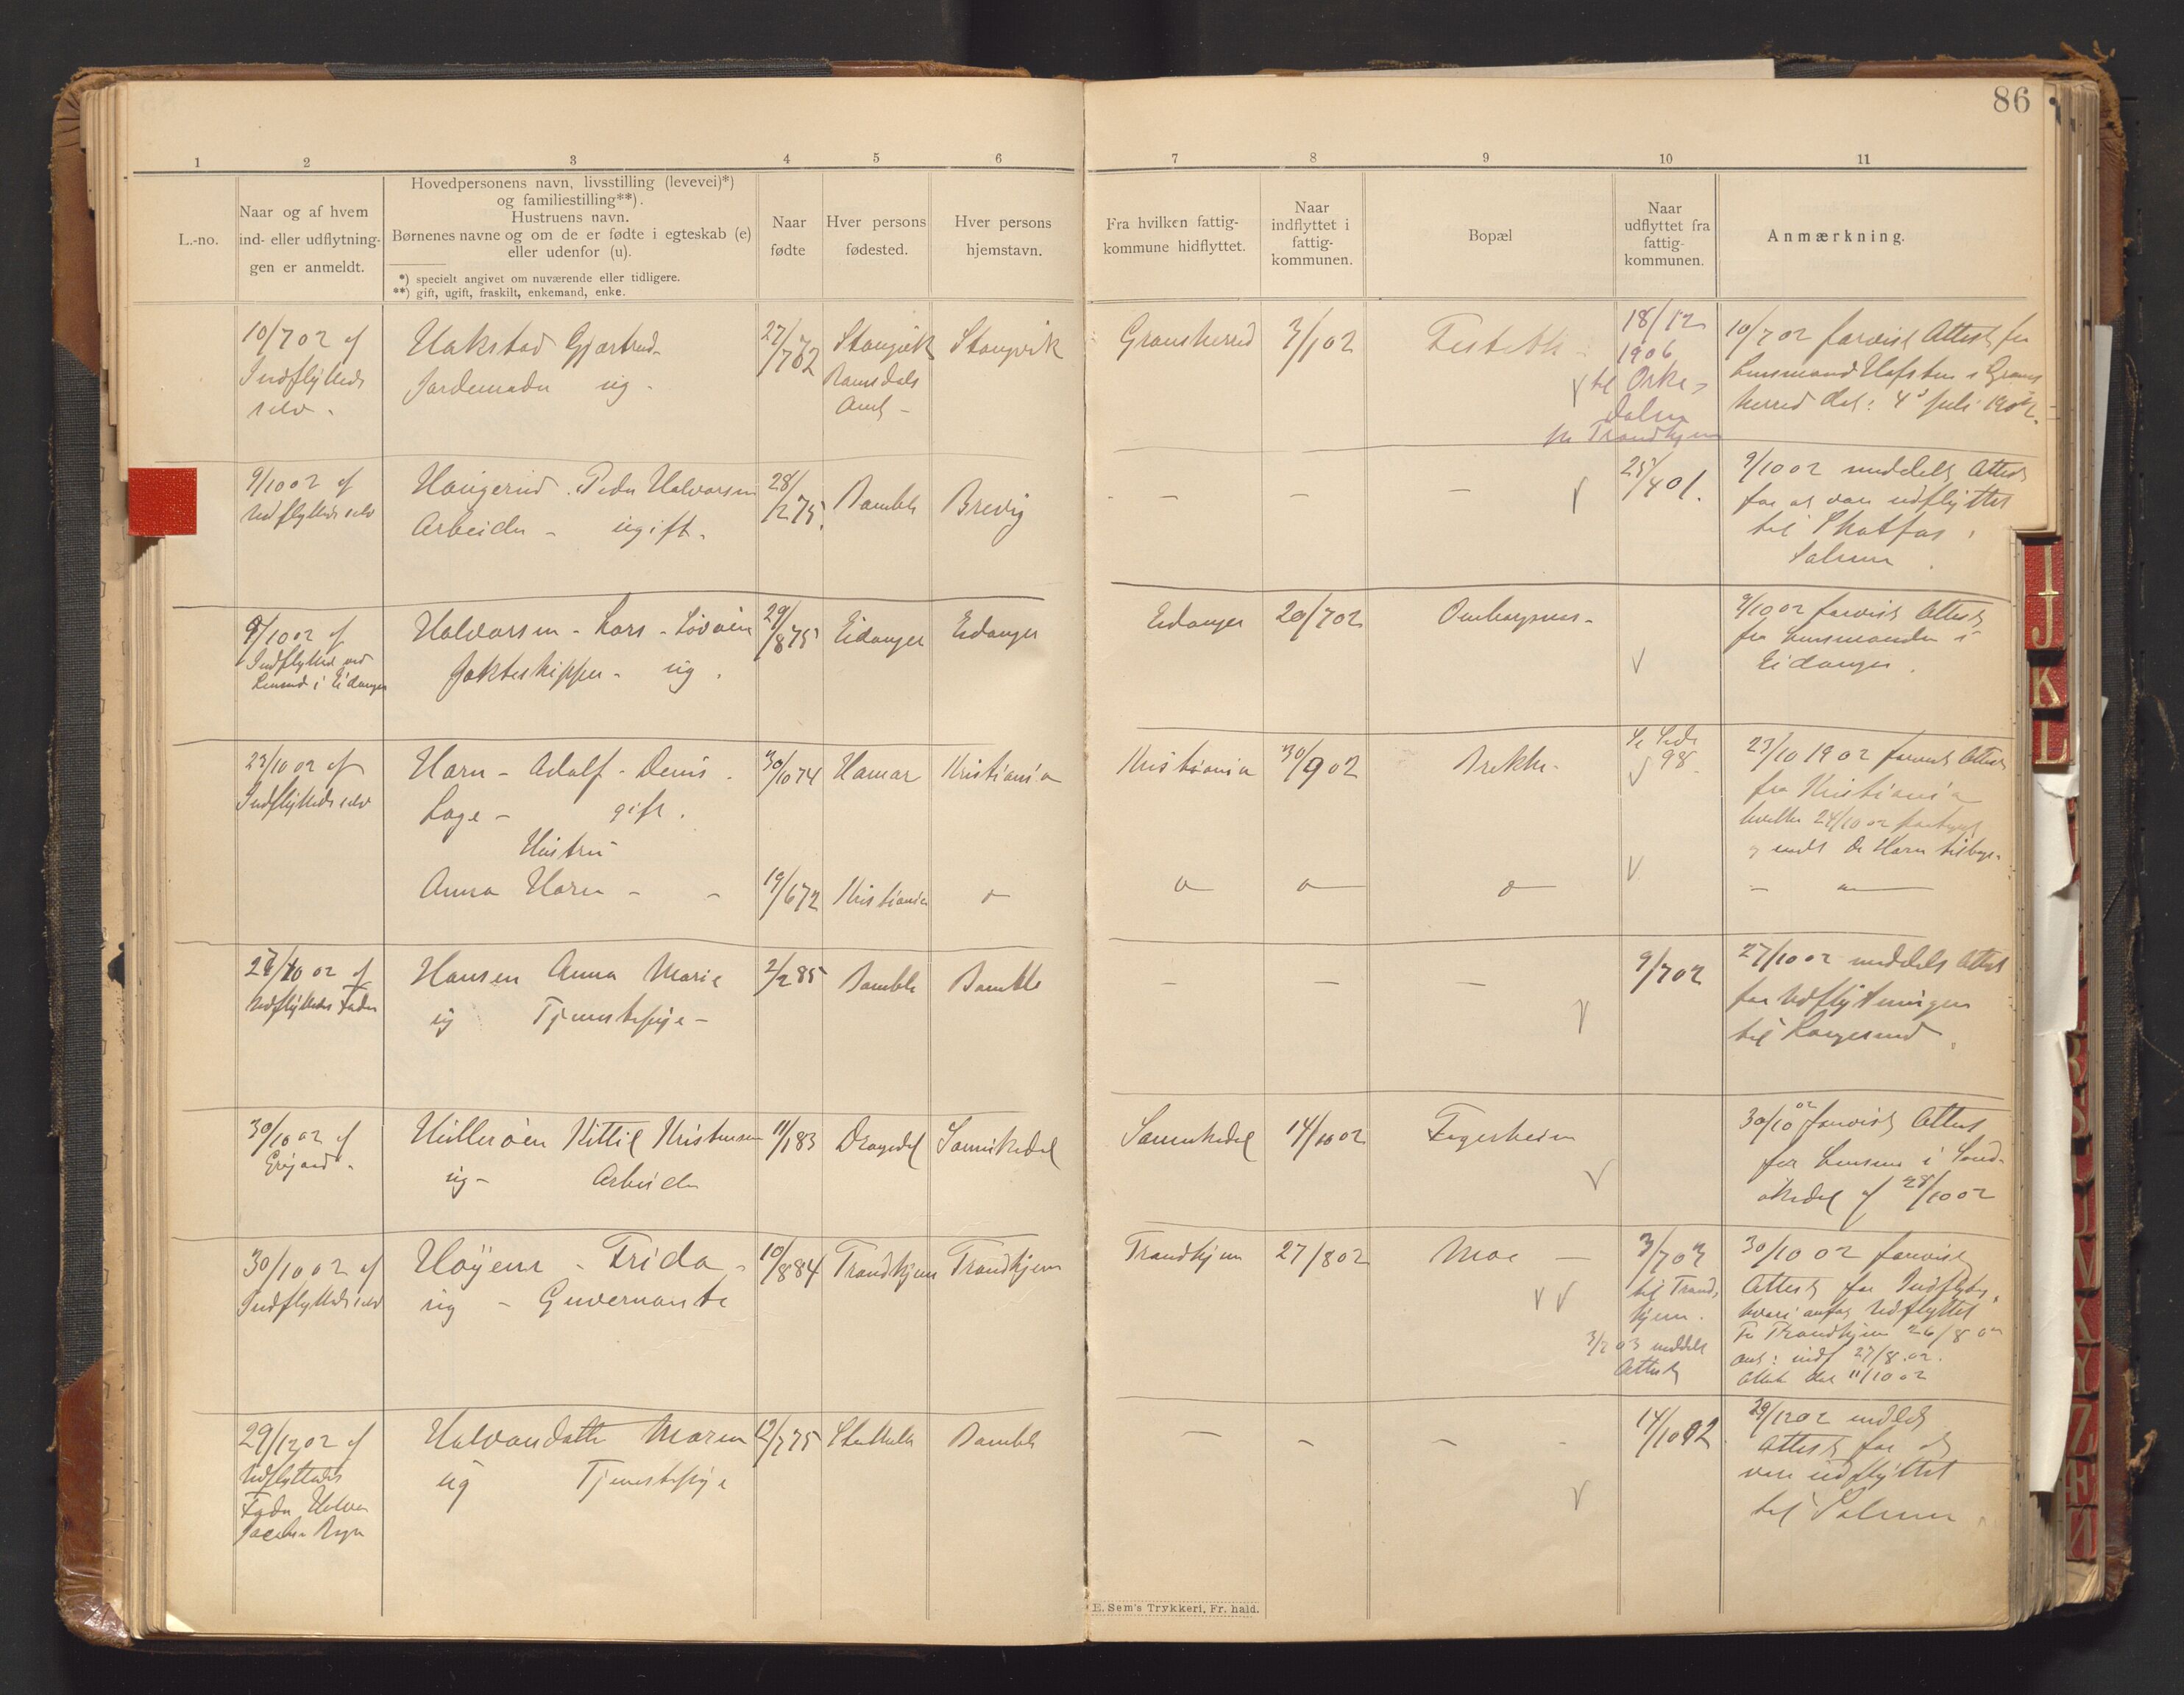 86
1 2 3 4 5 6 7 8 9 10 11
L.-no.
Naar og af hvem
ind- eller udflytnin-
gen er anmeldt.
Hovedpersonens navn, livsstilling (levevei)*)
og familiestilling**).
Hustruens navn.
Børnenes navne og om de er fødte i egteskab (e)
eller udenfor (u).
*) specielt angivet om nuværende eller tidligere.
**) gift, ugift, fraskilt, enkemand, enke.
Naar
fødte
Hver persons
fødested.
Hver persons
hjemstavn.
Fra hvilken fattig-
kommune hidflyttet.
Naar
indflyttet i
fattig-
kommunen.
Bopæl
Naar
udflyttet fra
fattig-
kommunen.
Anmærkning.
10/7 02 af
Indflyttede
selv.
Hakstad Gjertrud
Jordemoder ug.
27/7 72
Stangvik
Romsdals
Amt
Stangvik
Gransherred
3/1 02
18/12
1906
til Orke-
dalen
pr Trondhjem
10/7 02 forvist Attest fra
Lensmand Hafsten i Grans
herred dat: 4 juli 1902.
9/10 02 af
Udflyttede selv
Haugerud Peder Halvorsen
Arbeider - ugift.
28/2 75.
Bamble
Brevig
- - -
25/4 01.
9/10 02 meddelt Attest
for at være udflyttet
til Skotfos,
Solum
9/10 02 af
Indflyttede ved
Lensmd i Eidanger
Halvorsen - Lars - Løvøen
Jakteskipper - ug.
29/8 75
Eidanger
Eidanger
Eidanger
20/7 02
Ombogsnes -
9/10 02 forvist Attest
fra Lensmanden i
Eidanger.
23/10 02 af
Indflyttede selv
Horn - Adolf - Denis.
Læge - gift.
30/10 74
Hamar
Kristiania
Kristiania
30/9 02
Brekke
Se Side
98
23/10 1902 forvist Attest
fra Kristiania
hvilken 24/10 02
og sendt Dr Horn tilbage.
Hustru
Anna Horn - -
19/6 72
Kristiania
27/10 02 af
Udflyttedes Fader
Hansen Anna Marie
ug Tjenestepige -
2/2 85
Bamble
Bamble
- - -
9/7 02
27/10 02 meddelt Attest
for Udflytningen
til Langesund.
30/10 02 af
Hullerøen Kittil Kristensen
ug - Arbeider
11/1 83
Drangedal
Sannikedal
Sannikedal
14/10 02
Fagerheim
30/10 02 forvist Attest
fra Lensm i Sand-
økedal af 28/10 02
30/10 02 af
Indflyttede selv
Høyem - Frida -
ug - Guvernante
10/8 84
Trondhjem
Trondhjem
Trondhjem
27/8 02
Moe -
3/7 03
til Trond-
hjem.
3/2 03 meddelt
Attest
30/10 02 forvist
Attest for Indflytn.
hvori anført Udflyttet
Fr Trondhjem 26/8 02
ank: indf 27/8 02.
Attest dat 11/10 02
29/12 02 af
Udflyttedes
Fader Halvor
Halvorsdatter Maren
ug Tjenestepige
12/7 75
Stathelle
Bamble
- - -
14/10 02
29/12 02 meddelt
Attest for at
være udflyttet
til Solum.
E. Sem's Trykkeri, Fr. hald.
I
J
K
L